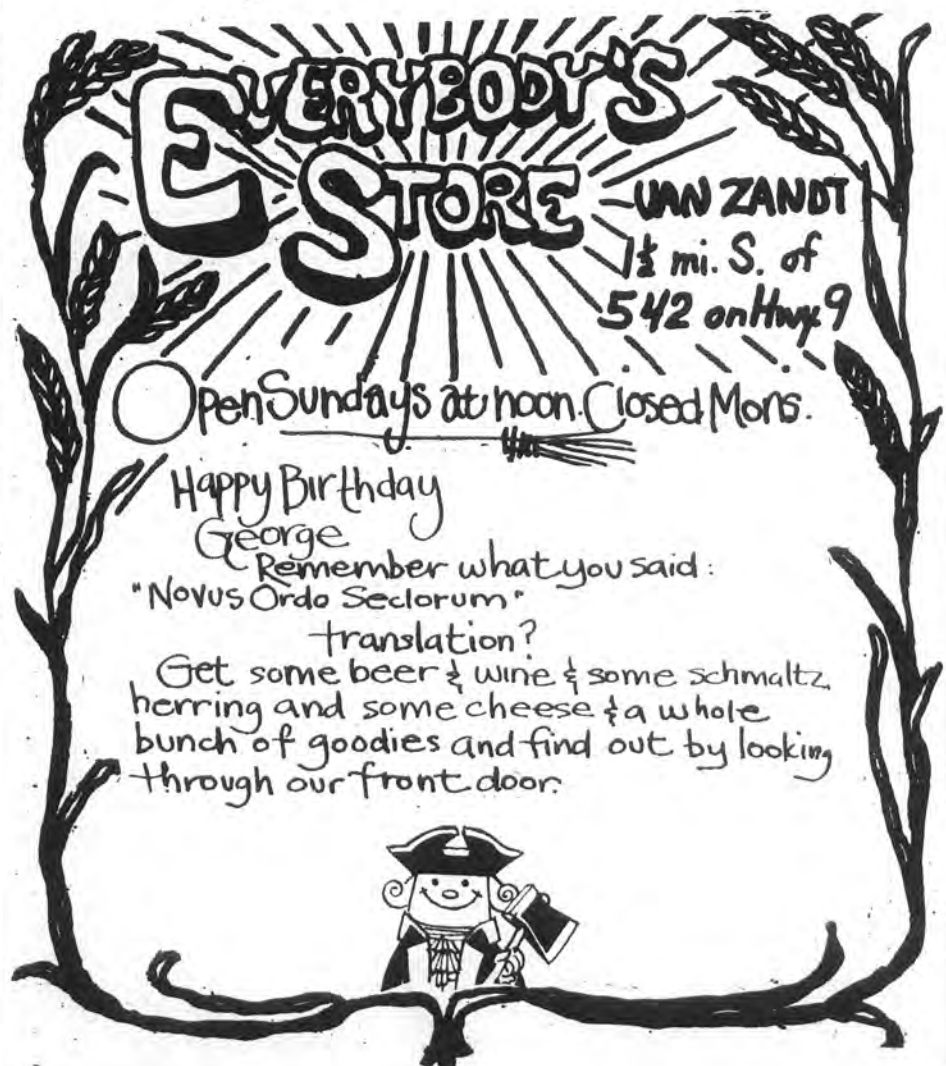 EVERYBODY'S
STORE
VAN ZANDT
1½ mi. S. of
542 on Hwy. 9
Open Sundays at noon. Closed Mons.
Happy Birthday
George
Remember what you said:
"Novus Ordo Seclorum"
translation?
Get some beer & wine & some schmaltz
herring and some cheese & a whole
bunch of goodies and find out by looking
through our front door.